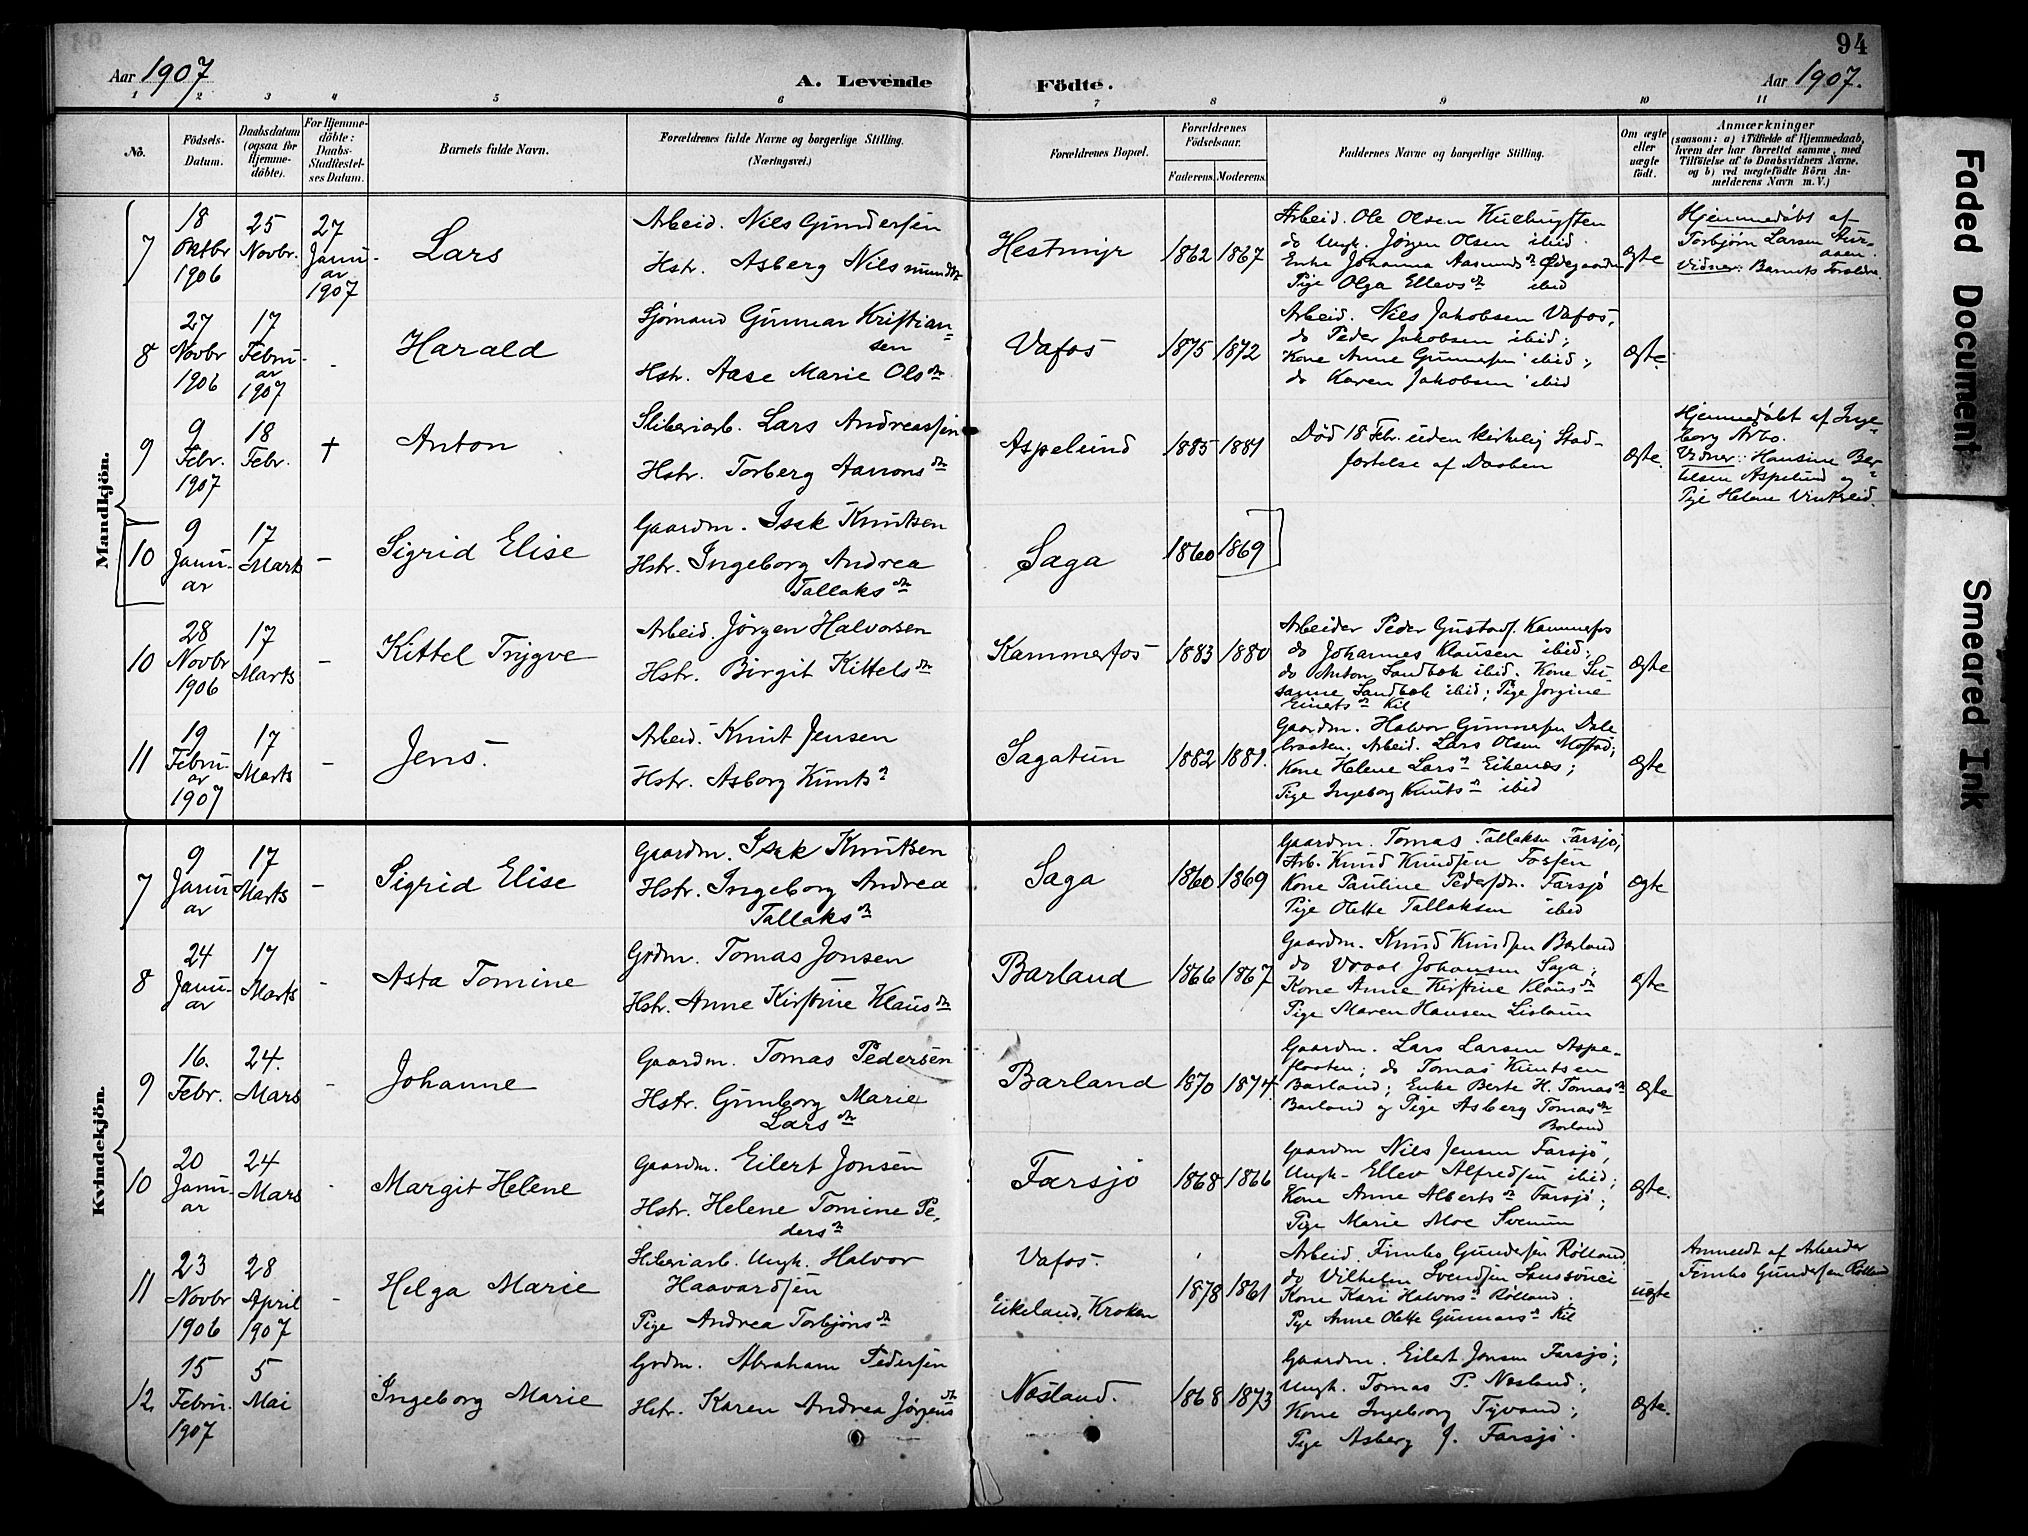 94
Aar 1907
A. Levende
Födte.
Aar 1907.
1 2 3 4 5 6 7 8 9 10 11
Nö.
Födsels-
Datum.
Daabsdatum
(ogsaa for
Hjemme-
döbte).
For Hjemme-
döbte:
Daabs-
Stadfestel-
ses Datum.
Barnets fulde Navn.
Forældrenes fulde Navne og borgerlige Stilling.
(Næringsvei.)
Forældrenes Bopæl.
Forældrenes
Födselsaar.
Faderens.
Moderens.
Faddernes Navne og borgerlige Stilling.
Om ægte
eller
uægte
födt.
Anmærkninger
(saasom: a) i Tilfælde af Hjemmedaab,
hvem der har forrettet samme, med
Tilföielse af to Daabsvidners Navne.
og b) ved uægtefödte Börn An-
melderens Navn m. V.)
Mandkjön.
7
18
Oktbr
1906
25
Novbr.
27
Janu-
ar
1907
Lars
Arbeid. Nils Gundersen
Hstr. Asberg Nils
Hestmyr
1862
1867
Arbeid. Ole Olsen
do Ungk. Jørgen Olsen ibid.
Enke Johanna Aasmunds dtr Ødegaarden
Pige Olga Ellevs dtr ibid
ægte
Hjemmedøbt af
Torbjørn Larsen
Vidner: Barnets Foreldre.
8
27
Novbr
1906
17
Febru-
ar
1907
-
Harald
Sjømand Gunnar Kristian-
sen
Hstr. Aase Marie Ols dtr
Vafos
1875
1872
Arbeid. Nils Jakobsen Vafos,
do Peder Jakobsen ibid;
Kone Anne Gunnesen ibid;
do Karen Jakobsen ibid
ægte
9
9
Febr.
1907
18
Febr.
†
Anton
Sliberiarb. Lars Andreassen
Hstr. Torberg Aanons dtr
Aspelund
1885
1881
Død 18 Febr. uden kirkelig Stad-
festelse af Daaben
ægte.
Hjemmedøbt af Inge-
borg Arbo.
Vidner: Hansine Ber-
telsen Aspelund og
Pige Helene
10
9
Janu-
ar
17
Marts
-
Sigrid Elise
Gaardm. Isak Knutsen
Hstr. Ingeborg Andrea
Tallaks dtr
Saga
1860
1869
10
28
Novbr
1906
17
Marts
-
Kittel Trygve
Arbeid. Jørgen Halvorsen
Hstr. Birgit Kittels dtr
Kammerfos
1883
1880
Arbeider Peder Gustavs. Kammerfos
do Johannes Klausen ibid;
do Anton Sandbæk ibid. Kone Su-
sanne Sandbæk ibid; Pige Jørgine
Einerts dtr Kil
ægte
11
19
Febru-
ar
1907
17
Marts
-
Jens.
Arbeid. Knut Jensen
Hstr. Asborg Knuts dtr
Sagatun
1882
1881.
Gaardm. Halvor Gunnersen Dale
braaten. Arbeid. Lars Olsen
Kone Helene Lars dtr Eikenæs;
Pige Ingeborg Knuts dtr ibid
ægte
Kvindekjön.
7
9
Janu-
ar
17
Marts
-
Sigrid Elise
Gaardm. Isak Knutsen
Hstr. Ingeborg Andrea
Tallaks dtr
Saga
1860
1869
Gaardm. Tomas Tallaksen Farsjø,
Arb. Knud Knudsen Fossen
Kone Pauline Peders dtr. Farsjø
Pige Olette Tallaksen ibid
ægte
8
24
Janu-
ar
17
Marts
-
Asta Tomine
Grdm. Tomas Jonsen
Hstr. Anne Kirstine Klaus dtr
Barland
1866
1867
Gaardm. Knud Knudsen Barland
do Vraal Johansen Saga;
Kone Anne Kirstine Klaus dtr
Pige Maren Hansen
ægte
9
16.
Febr.
24.
Mars
-
Johanne
Gaardm. Tomas Pedersen
Hstr. Gunborg Marie
Lars dtr
Barland
1870
1874.
Gaardm. Lars Larsen Aspe-
flooten; do Tomas Knutsen
Barland; Enke Berte H. Tomas dtr
Barland og Pige Asberg Tomas dtr
Barland
ægte
10
20
Janu-
ar
24
Mars
-
Margit Helene
Gaardm. Eilert Jonsen
Hstr. Helene Tomine Pe-
ders dtr
Farsjø
1868
1866
Gaardm Nils Jensen Farsjø,
Ungk. Ellev Alfredsen ibid;
Kone Anne Alberts dtr Farsjø;
Pige Marie Moe Svenum
ægte.
11
23
Novbr
1906
28
April
1907
-
Helga Marie
Sliberiarb. Ungk. Halvor
Haavardsen
Pige Andrea Torbjørns dtr
Vafos.
Eikeland, Kroken
1878
1861
Arbeid. Finbo Gundersen Rølland,
do Vilhelm Svendsen Sanssouci
Kone Kari Halvors dtr Rølland;
Pige Anne Olette Gunnars dtr Kil
uægte
Anmeldt af Arbeider
Finbo Gundersen Rølland
12
15
Febru.
1907
5
Mai
Ingeborg Marie
Grdm. Abraham Pedersen
Hstr. Karen Andrea Jørgens dtr
Næsland.
1868
1873
Gaardm. Eilert Jonsen Farsjø;
Ungk. Tomas P. Næsland;
Kone Ingeborg Tyvand;
Pige Asberg J. Farsjø.
ægte.
Faded Document
Smeared Ink